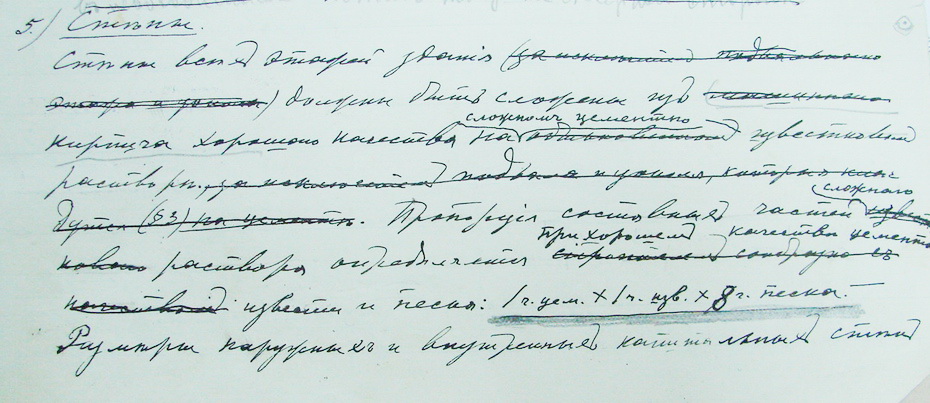 5.) Стѣны.
Стѣны всѣхъ этажей зданія (за исключеніемъ подвальнаго
этажа и цоколя) должны быть сложены изъ машиннаго
сложномъ цементно
кирпича хорошаго качества на обыкновенномъ известковомъ
растворѣ, за исключеніемъ подвала и цоколя, которые кла-
сложнаго
дутся (§3) на цементѣ. Пропорція составныхъ частей извест
при хорошемъ качествѣ цемента
коваго раствора опредѣляется сообразно съ
качествомъ извести и песка: 1 ч. цем. × 1 ч. изв. × 8 ч. песка.
Размѣры наружныхъ и внутреннихъ капитальныхъ стѣнъ